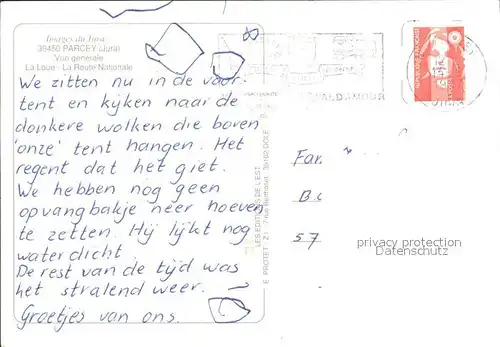 Images du Jura
39450 PARCEY (Jura)
Vue générale
La Loue - La Route Nationale
We zitten nu in de voor-
tent en kijken naar de
donkere wolken die boven
'onze' tent hangen. Het
regent dat het giet.
We hebben nog geen
opvangbakje neer hoeven
te zetten. Hij lijkt nog
waterdicht.
De rest van de tijd was
het stralend weer.
Groetjes van ons.
LES EDITIONS DE L'EST
39100 DOLE
VAL D'AMOUR
REPUBLIQUE FRANÇAISE
Fam.
B
57
privacy protection
Datenschutz